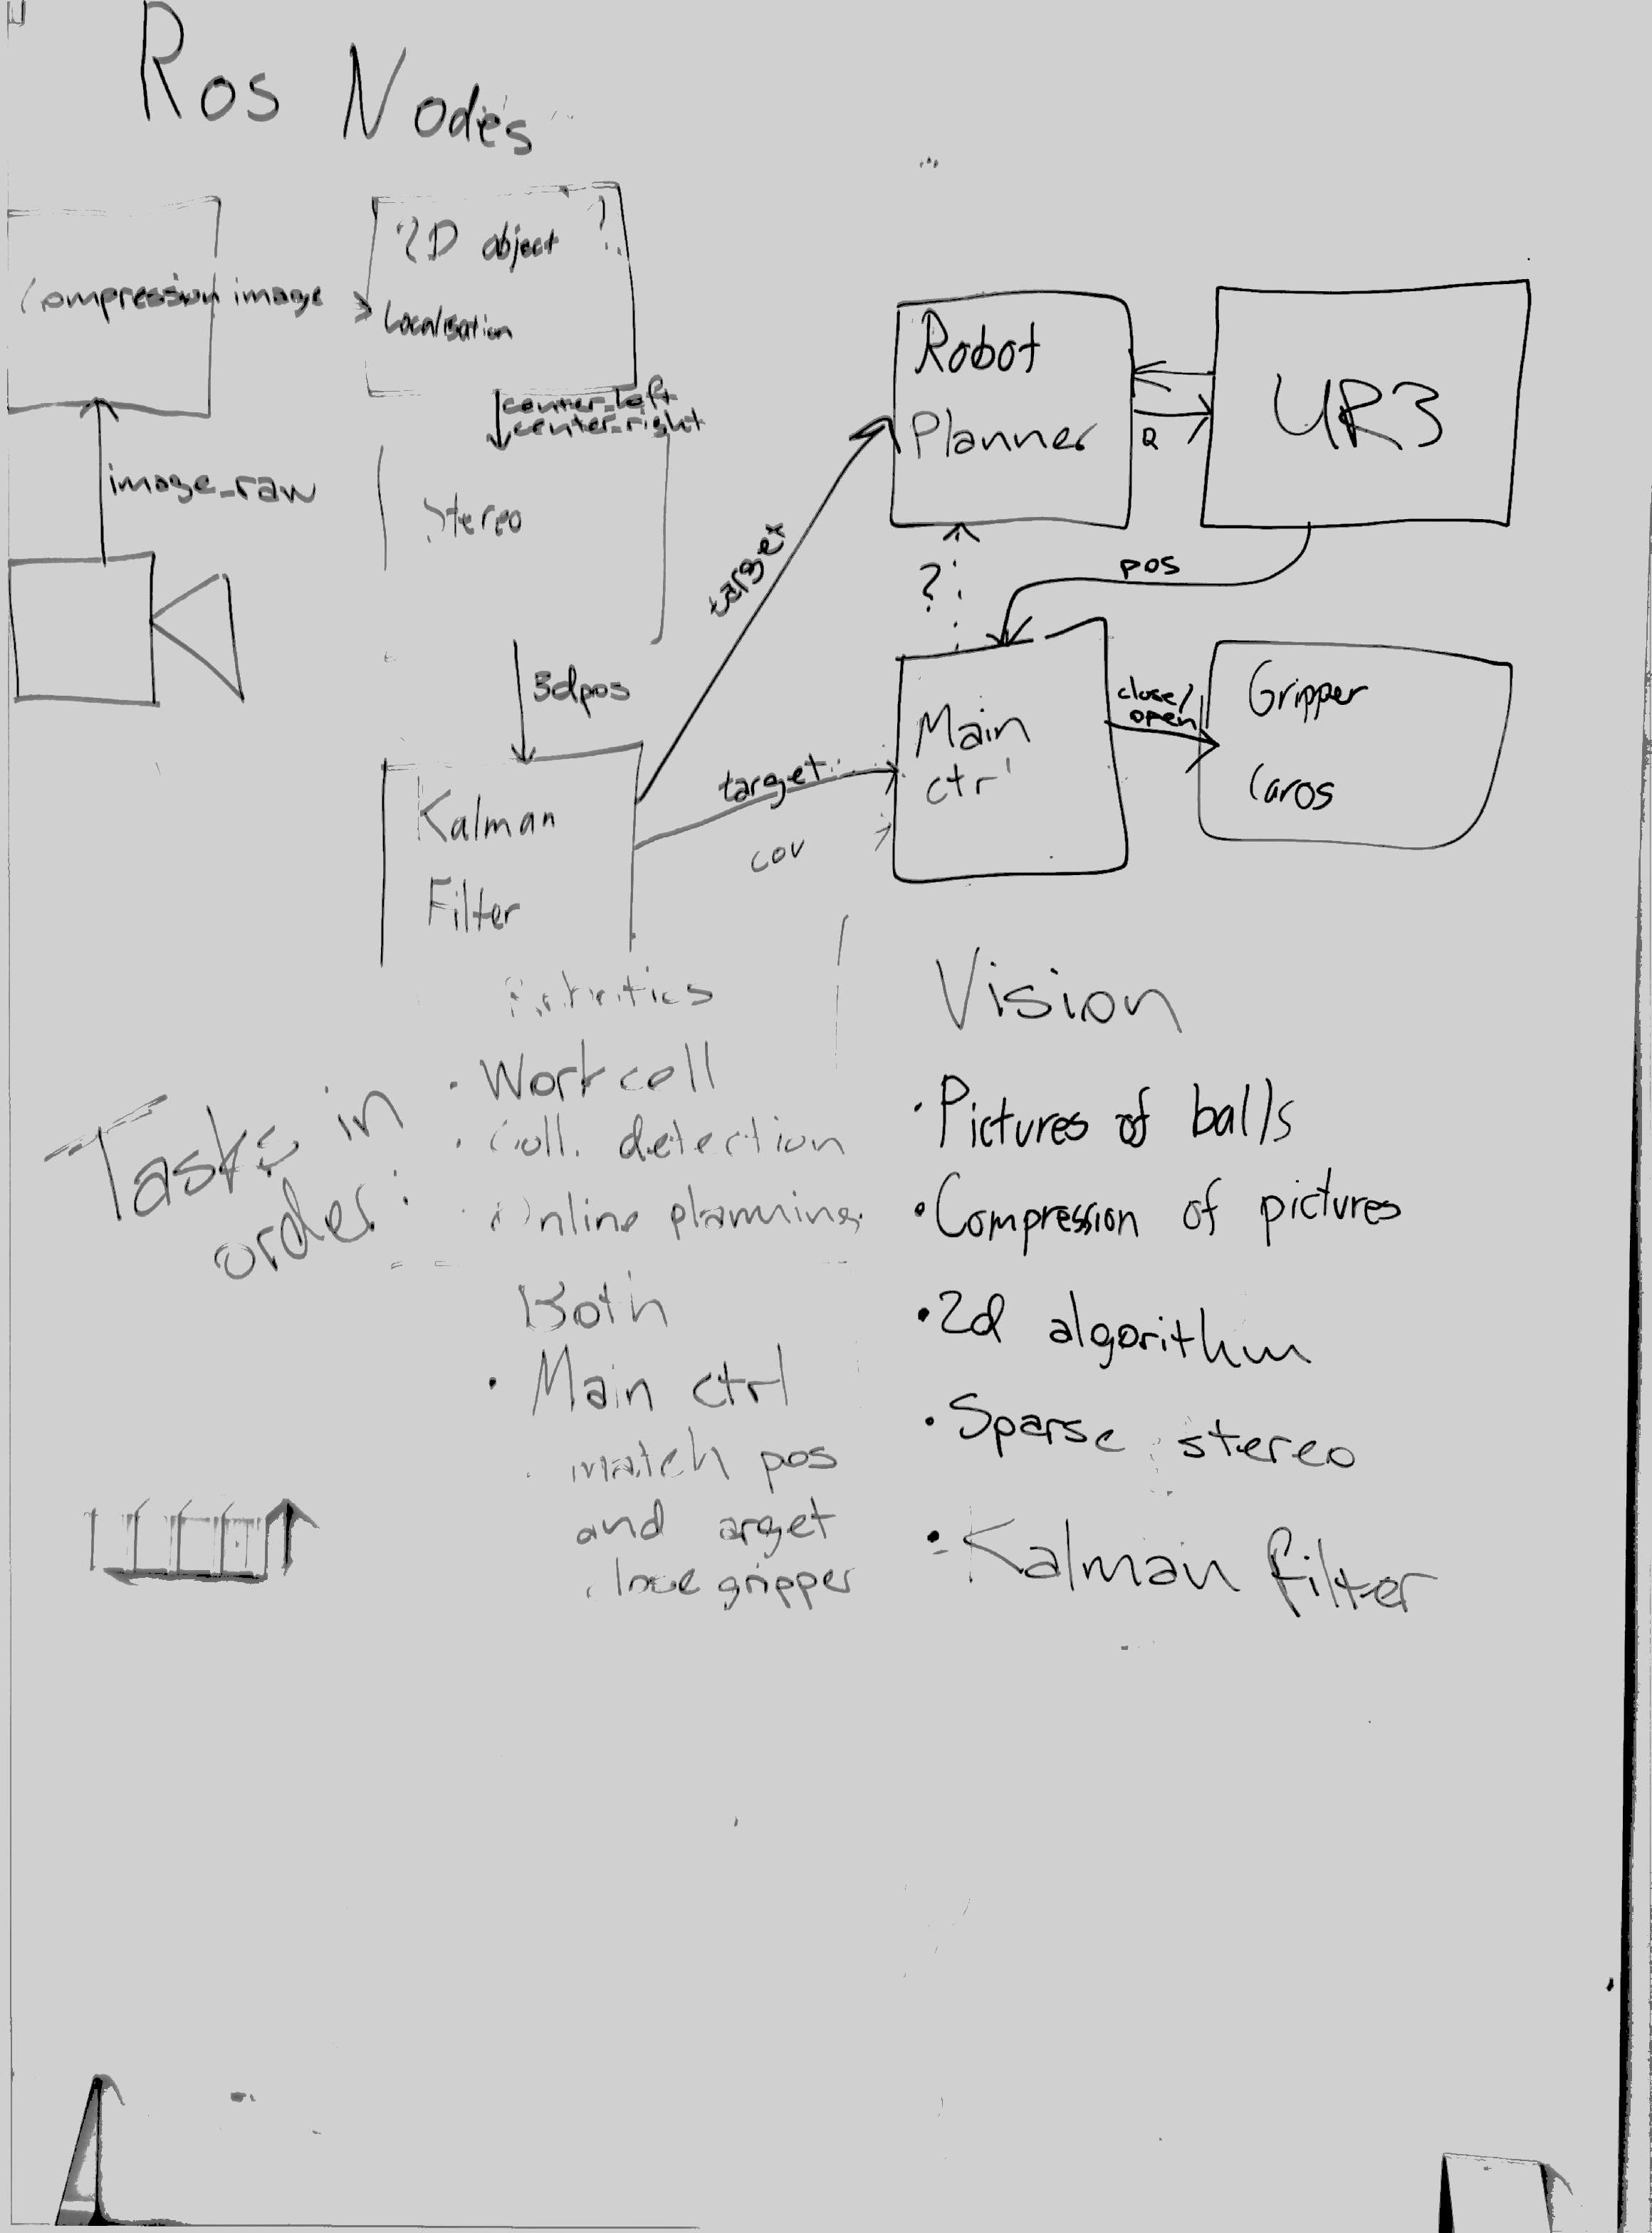 Ros Nodes
Compression image
2D object ?
Localisation
center_left
center_right
image_raw
Stereo
3dpos
Kalman
Filter
target
target
cov
Robot
Planner
Q
UR3
?
pos
Main
ctrl
close/
open
Gripper
Caros
Tasks in
order:
• Workcell
• Coll. detection
• Online planning
Both
• Main ctrl
• match pos
and target
close gripper
Vision
• Pictures of balls
• Compression of pictures
• 2d algorithm
• Sparse stereo
• Kalman filter